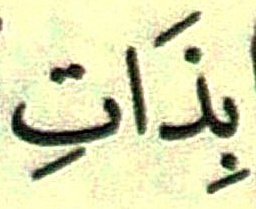 بِذَاتِ